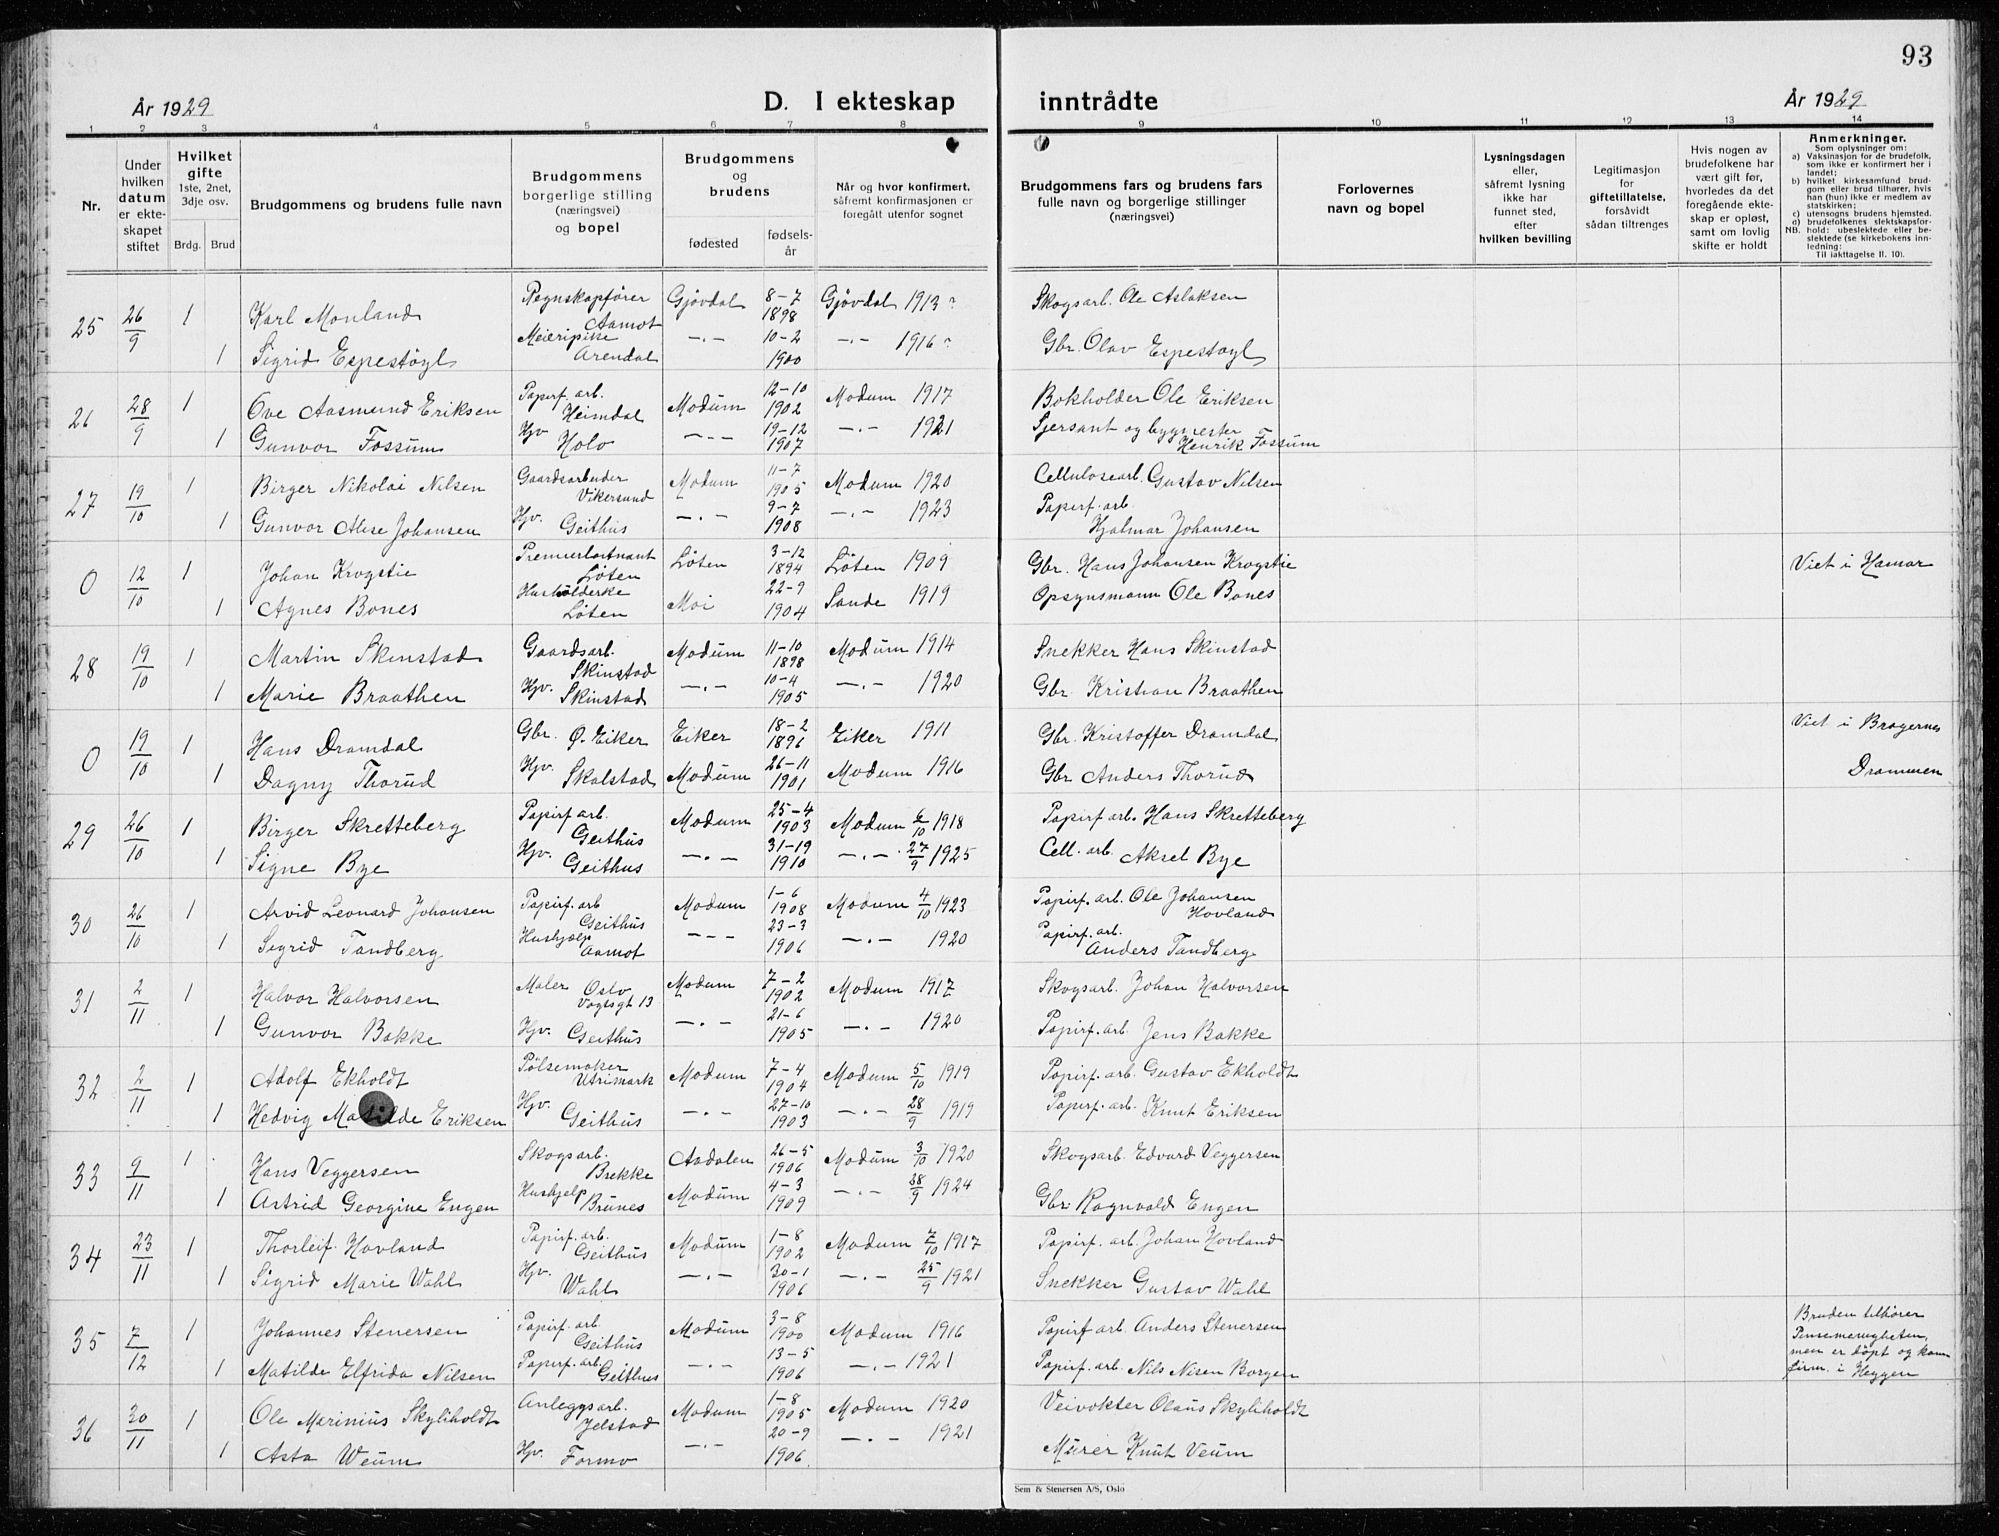 93
År 1929 D. I ekteskap inntrådte År 1929
1 2 3 4 5 6 7 8 9 10 11 12 13 14
Nr.
Under hvilken datum er ekteskapet stiftet
Hvilket gifte
1ste, 2net, 3dje osv.
Brdg. Brud
Brudgommens og brudens fulle navn
Brudgommens borgerlige stilling (næringsvei) og bopel
Brudgommens og brudens
fødested fødselsår
Når og hvor konfirmert, såfremt konfirmasjonen er foregått utenfor sognet
Brudgommens fars og brudens fars fulle navn og borgerlige stillinger (næringsvei)
Forlovernes navn og bopel
Lysningsdagen eller, såfremt lysning ikke har funnet sted, efter hvilken bevilling
Legitimasjon for giftetillatelse, forsåvidt sådan tiltrenges
Hvis nogen av brudefolkene har vært gift før, hvorledes da det foregående ekteskap er opløst, samt om lovlig skifte er holdt
Anmerkninger.
Som oplysninger om:
a) Vaksinasjon for de brudefolk, som ikke er konfirmert her i landet;
b) hvilket kirkesamfund brudgom eller brud tilhører, hvis han (hun) ikke er medlem av statskirken;
c) utensogns brudens hjemsted.
d) brudefolkenes slektskapsforhold: ubeslektede eller beslektede (se kirkebokens innledning:
NB.
Til iakttagelse II. 10).
25 26/9 1 Karl Monland Regnskapfører Aamot Gjövdal 8-7 1898 Gjövdal 1913? Skogsarb. Ole Aslaksen
1 Sigrid Espestöyl Meieripike Arendal —.— 10-2 1900 —.— 1916? Gbr. Olav Espestöyl
26 28/9 1 Ove Aasmund Eriksen Papirf. arb. Heimdal Modum 12-10 1902 Modum 1917 Bokholder Ole Eriksen
1 Gunvor Fossum Hjv Holo —.— 19-12 1907 —.— 1921 Sjersant og bygmester Henrik Fossum
27 19/10 1 Birger Nikolai Nilsen Gaardsarbeider Vikersund Modum 11-7 1905 Modum 1920 Cellulosearb. Gustav Nilsen
1 Gunvor Alise Johansen Hjv. Geithus —.— 9-7 1908 —.— 1923 Papirf. arb. Hjalmar Johansen
0 12/10 1 Johan Krogstie Premierløitnant Löten Löten 3-12 1894 Löten 1909 Gbr. Hans Johansen Krogstie Viet i Hamar
1 Agnes Bones Husholderske Löten Moi 22-9 1904 Sande 1919 Opsynsmann Ole Bones
28 19/10 1 Martin Skinstad Gaardsarb. Skinstad Modum 11-10 1898 Modum 1914 Snekker Hans Skinstad
1 Marie Braathen Hjv. Skinstad —.— 10-4 1905 —.— 1920 Gbr. Kristian Braathen
0 19/10 1 Hans Dramdal Gbr. Ø. Eiker Eiker 18-2 1896 Eiker 1911 Gbr. Kristoffer Dramdal Viet i Bragernes
1 Dagny Thorud Hjv. Skalstad Modum 26-11 1901 Modum 1916 Gbr Anders Thorud Drammen
29 26/10 1 Birger Skretteberg Papirf arb. Geithus Modum 25-4 1903 Modum 6/10 1918 Papirf arb. Hans Skretteberg
1 Signe Bye Hjv. Geithus —.— 31-19 1910 —.— 27/9 1925 Cell. arb. Aksel Bye
30 26/10 1 Arvid Leonard Johansen Papirf. arb Geithus Modum 1-6 1908 Modum 4/10 1923 Papirf. arb. Ole Johansen Hovland
1 Sigrid Tandberg Hushjælp Aamot --- 23-3 1906 —.— 1920 Papirf. arb. Anders Tandberg
31 2/11 1 Halvor Halvorsen Maler Oslo Vogtsgt 13 Modum 7-2 1902 Modum 1917 Skogsarb. Johan Halvorsen
1 Gunvor Bakke Hjv. Geithus —.— 21-6 1905 —.— 1920 Papirf. arb. Jens Bakke
32 2/11 1 Adolf Ekholdt Pölsemaker Utrimark Modum 7-4 1904 Modum 5/10 1919 Papirf. arb. Gustav Ekholdt
1 Hedvig Matilde Eriksen Hjv. Geithus —.— 27-10 1903 —.— 28/9 1919 Papirf. arb. Knut Eriksen
33 9/11 1 Hans Veggersen Skogsarb. Brekke Aadalen 26-5 1906 Modum 3/10 1920 Skogsarb. Edvard Veggersen
1 Astrid Georgine Engen Hushjelp Brunes Modum 4-3 1909 —.— 28/9 1924 Gbr. Ragnvald Engen
34 23/11 1 Thorleif Hovland Papirf. arb. Geithus Modum 1-8 1902 Modum 7/10 1917 Papirf. arb. Johan Hovland
1 Sigrid Marie Wahl Hjv. Wahl —.— 30-1 1906 —.— 25/9 1921 Snekker Gustav Wahl
35 7/12 1 Johannes Stenersen Papirf. arb. Geithus Modum 3-8 1900 Modum 1916 Papirf arb. Anders Stenersen Bruden tilhører Pinsemenigheten, men er döpt og konfirm. i Heggen
1 Matilde Elfrida Nilsen Papirf. arb. Geithus —.— 13-5 1906 —.— 1921 Papirf. arb. Nils Nisen Borgen
36 30/11 1 Ole Marinius Skyliholdt Anleggsarb. Jelstad Modum 1-8 1905 Modum 1920 Veivokter Olaus Skyliholdt
1 Asta Weum Hjv. Formo —.— 20-9 1906 —.— 1921 Murer Knut Veum
Sem & Stenersen A/S, Oslo